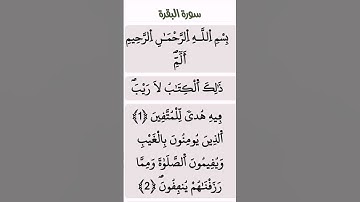 سورة البقرة
بِسْمِ اِ۬للَّهِ اِ۬لرَّحْمَٰنِ اِ۬لرَّحِيمِ
أَلَٓمِّٓۖ
ذَٰلِكَ اَ۬لْكِتَٰبُ لَا رَيْبَۖ
فِيهِ هُدىٗ لِّلْمُتَّقِينَ ﴿1﴾
اَ۬لذِينَ يُومِنُونَ بِالْغَيْبِ
وَيُقِيمُونَ اَ۬لصَّلَوٰةَ وَمِمَّا
رَزَقْنَٰهُمْ يُنفِقُونَۖ ﴿2﴾